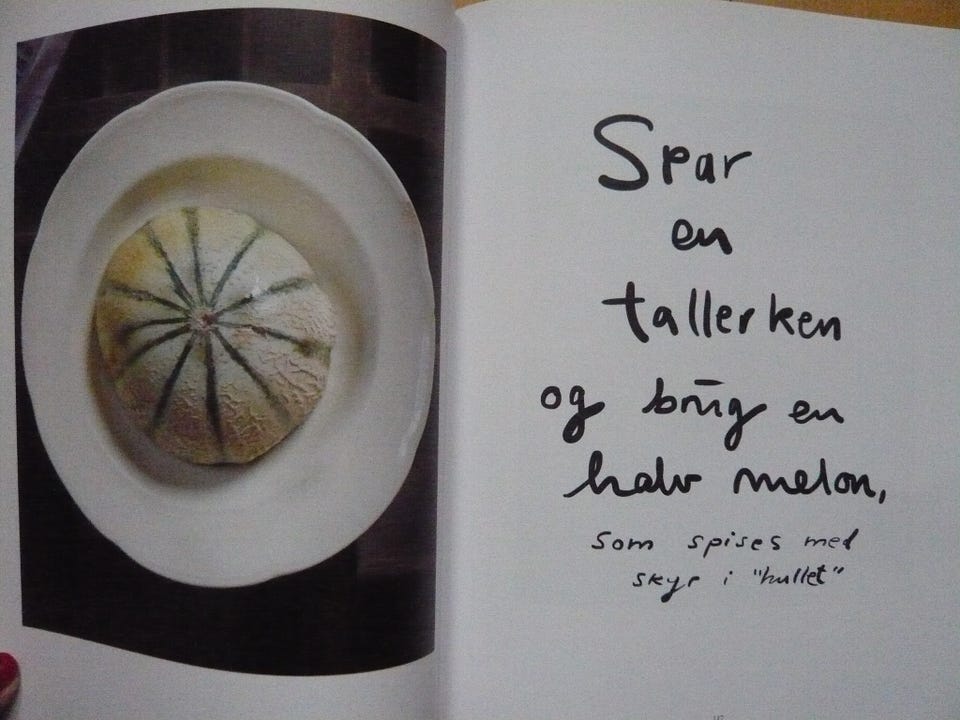 Spar
en
tallerken
og brug en
halv melon,
som spises med
skyr i "hullet"